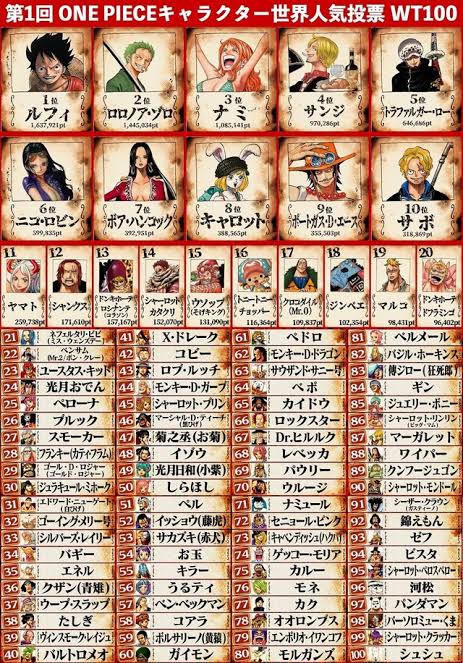 第1回 ONE PIECEキャラクター世界人気投票 WT100
1位
ルフィ
1,637,921pt
2位
ロロノア・ゾロ
1,445,034pt
3位
ナミ
4位
サンジ
970,286pt
5位
トラファルガー・ロー
646,686pt
6位
ニコ・ロビン
599,835pt
7位
ボア・ハンコック
392,951pt
8位
キャロット
388,565pt
9位
ポートガス・D・エース
355,503pt
10位
サボ
318,869pt
11
ヤマト
259,738pt
12
シャンクス
171,610pt
13
ドンキホーテ
ロシナンテ
コラソン
157,167pt
14
シャーロット
カタクリ
152,070pt
15
ウソップ
(そげキング)
131,090pt
16
トニートニー
チョッパー
116,364pt
17
クロコダイル
(Mr.0)
109,837pt
18
ジンベエ
102,354pt
19
マルコ
98,431pt
20
ドンキホーテ
ドフラミンゴ
96,402pt
21 ネフェルタリ・ビビ
(ミス・ウェンズデー)
22 ベンサム
(Mr.2/ボン・クレー)
23 ユースタス・キッド
24 光月おでん
25 ペローナ
26 ブルック
27 スモーカー
28 フランキー(カティ・フラム)
29 ゴール・D・ロジャー
(ゴールド・ロジャー)
30 ジュラキュール・ミホーク
31 エドワード・ニューゲート
(白ひげ)
32 ゴーイング・メリー号
33 シルバーズ・レイリー
34 バギー
35 エネル
36 クザン(青雉)
37 ウープ・スラップ
38 たしぎ
39 ヴィンスモーク・レイジュ
40 バルトロメオ
41 X・ドレーク
42 コビー
43 ロブ・ルッチ
44 モンキー・D・ガープ
45 シャーロット・プリン
46 マーシャル・D・ティーチ
(黒ひげ)
47 菊之丞(お菊)
48 イゾウ
49 光月日和(小紫)
50 しらほし
51 ベル
52 イッショウ(藤虎)
53 サカズキ(赤犬)
54 お玉
55 キラー
56 うるティ
57 ベン・ベックマン
58 コアラ
59 ボルサリーノ(黄猿)
60 ガイモン
61 ペドロ
62 モンキー・D・ドラゴン
63 サウザンド・サニー号
64 ベポ
65 カイドウ
66 ロックスター
67 Dr.ヒルルク
68 レベッカ
69 パウリー
70 ウルージ
71 ナミュール
72 セニョール・ピンク
73 キャベンディッシュ(ハクバ)
74 ゲッコー・モリア
75 カルー
76 モネ
77 カク
78 オオロンブス
79 エンポリオ・イワンコフ
80 モルガンズ
81 ベルメール
82 バジル・ホーキンス
83 傳ジロー(狂死郎)
84 ギン
85 ジュエリー・ボニー
86 シャーロット・リンリン
(ビッグ・マム)
87 マーガレット
88 ワイパー
89 クンフージュゴン
90 シャーロット・モンドール
91 シーザー・クラウン
(ガスティーノ)
92 錦えもん
93 ゼフ
94 ビスタ
95 シャーロット・ペロスペロー
96 河松
97 パンダマン
98 バーソロミュー・くま
99 シャーロット・クラッカー
100 シュシュ